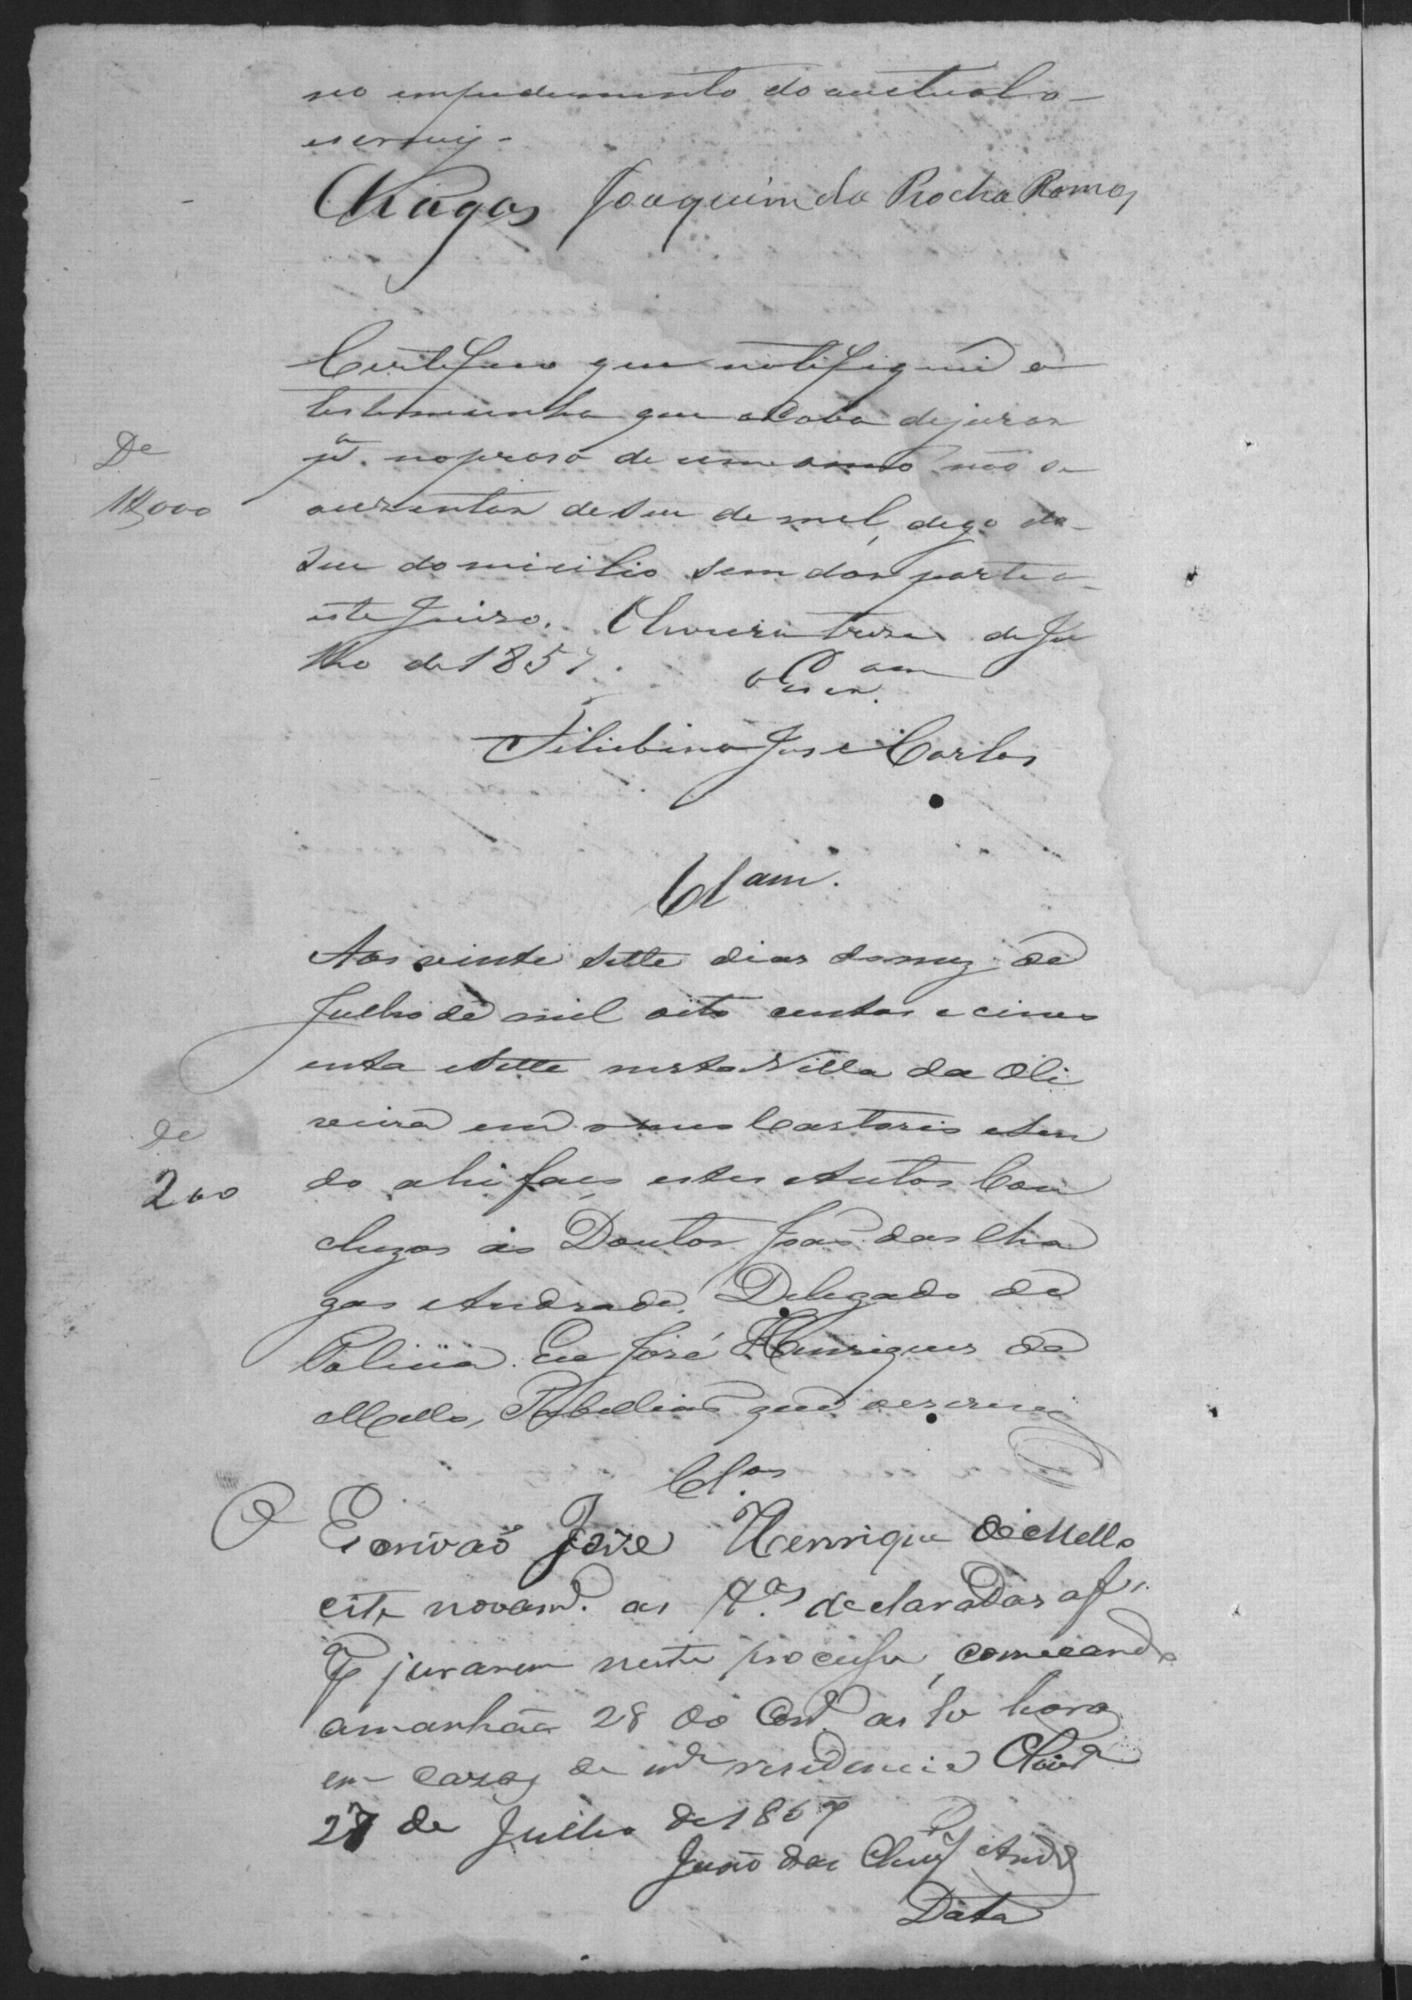 no empedimento do actual o
escrevy.
Chagas Joaquim da Rocha Ramos
Certifico que notifiquei a
testemunha que acaba de jurar
De
pª. no praso de um anno não se
1$000
auzentar de seu de mel, digo de
seu domicilio sem dar parte a
este Juiso. Oliveira treze de Ju
lho de 1857.
o Escrm.
Filisbino Jose Carlos
Clam.
Aos vinte sette dias do mez de
Julho de mil oito centos e cinco
enta e sette nesta Villa da Oli
veira em o meu Cartorio e sen
de
do ahi faço estes Autos Con
200
cluzos ao Doutor João das Cha
gas Andrade, Delegado de
Policia. Eu José Henriques de
Mello, Tabellião que o escrevy
Cl.os
O Escrivaõ Joze Henrique de Mello
cite novam.e as T.as declaradas afi.
q' jurarem neste processo, comecando
amanhãa 28 do Corr.e as 10 horas
em cazas de mª residencia Oliv.ra
27 de Julho de 1857
João das Chag.s And.e
Data